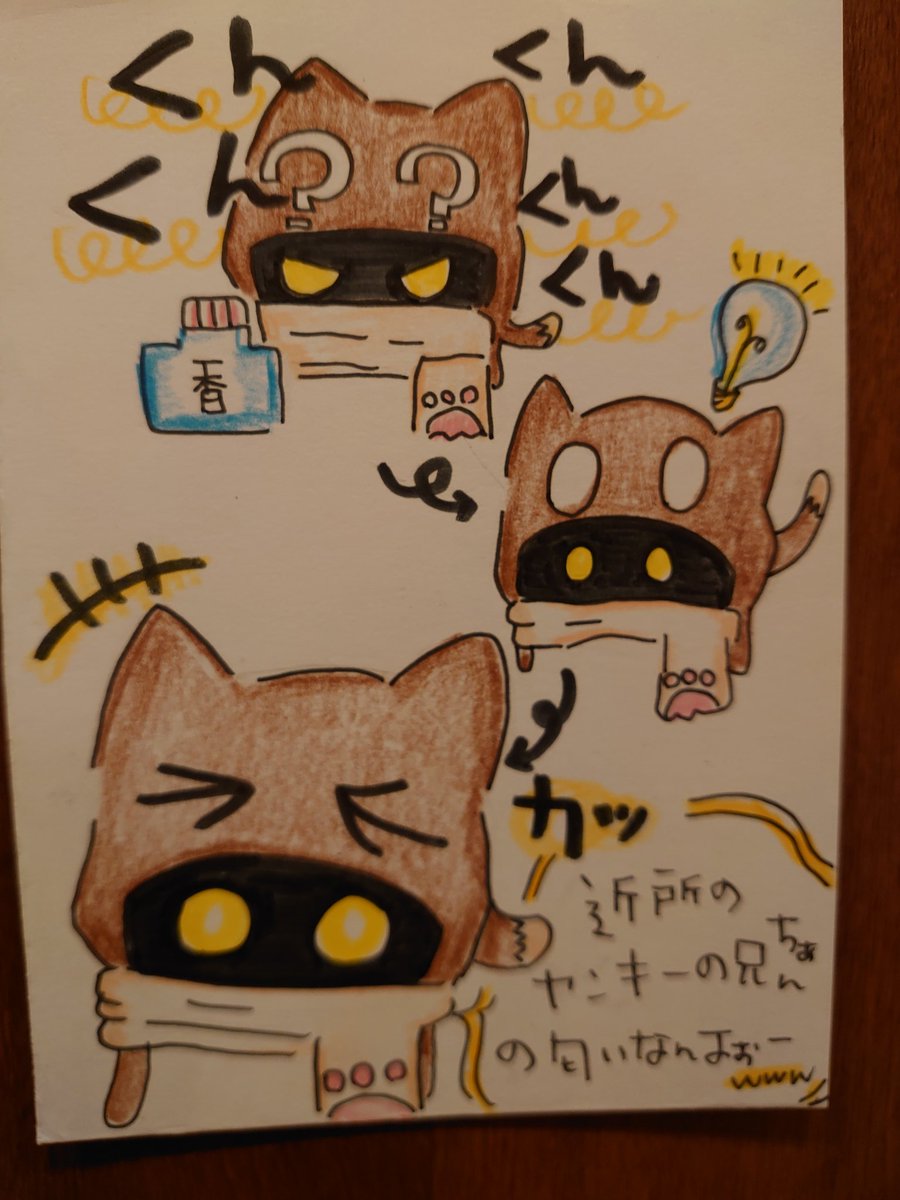 くん
くん
くん
くん
くん
香
カッ
近所の
ヤンキーの兄ちぁん
の匂いなんよぉー
www